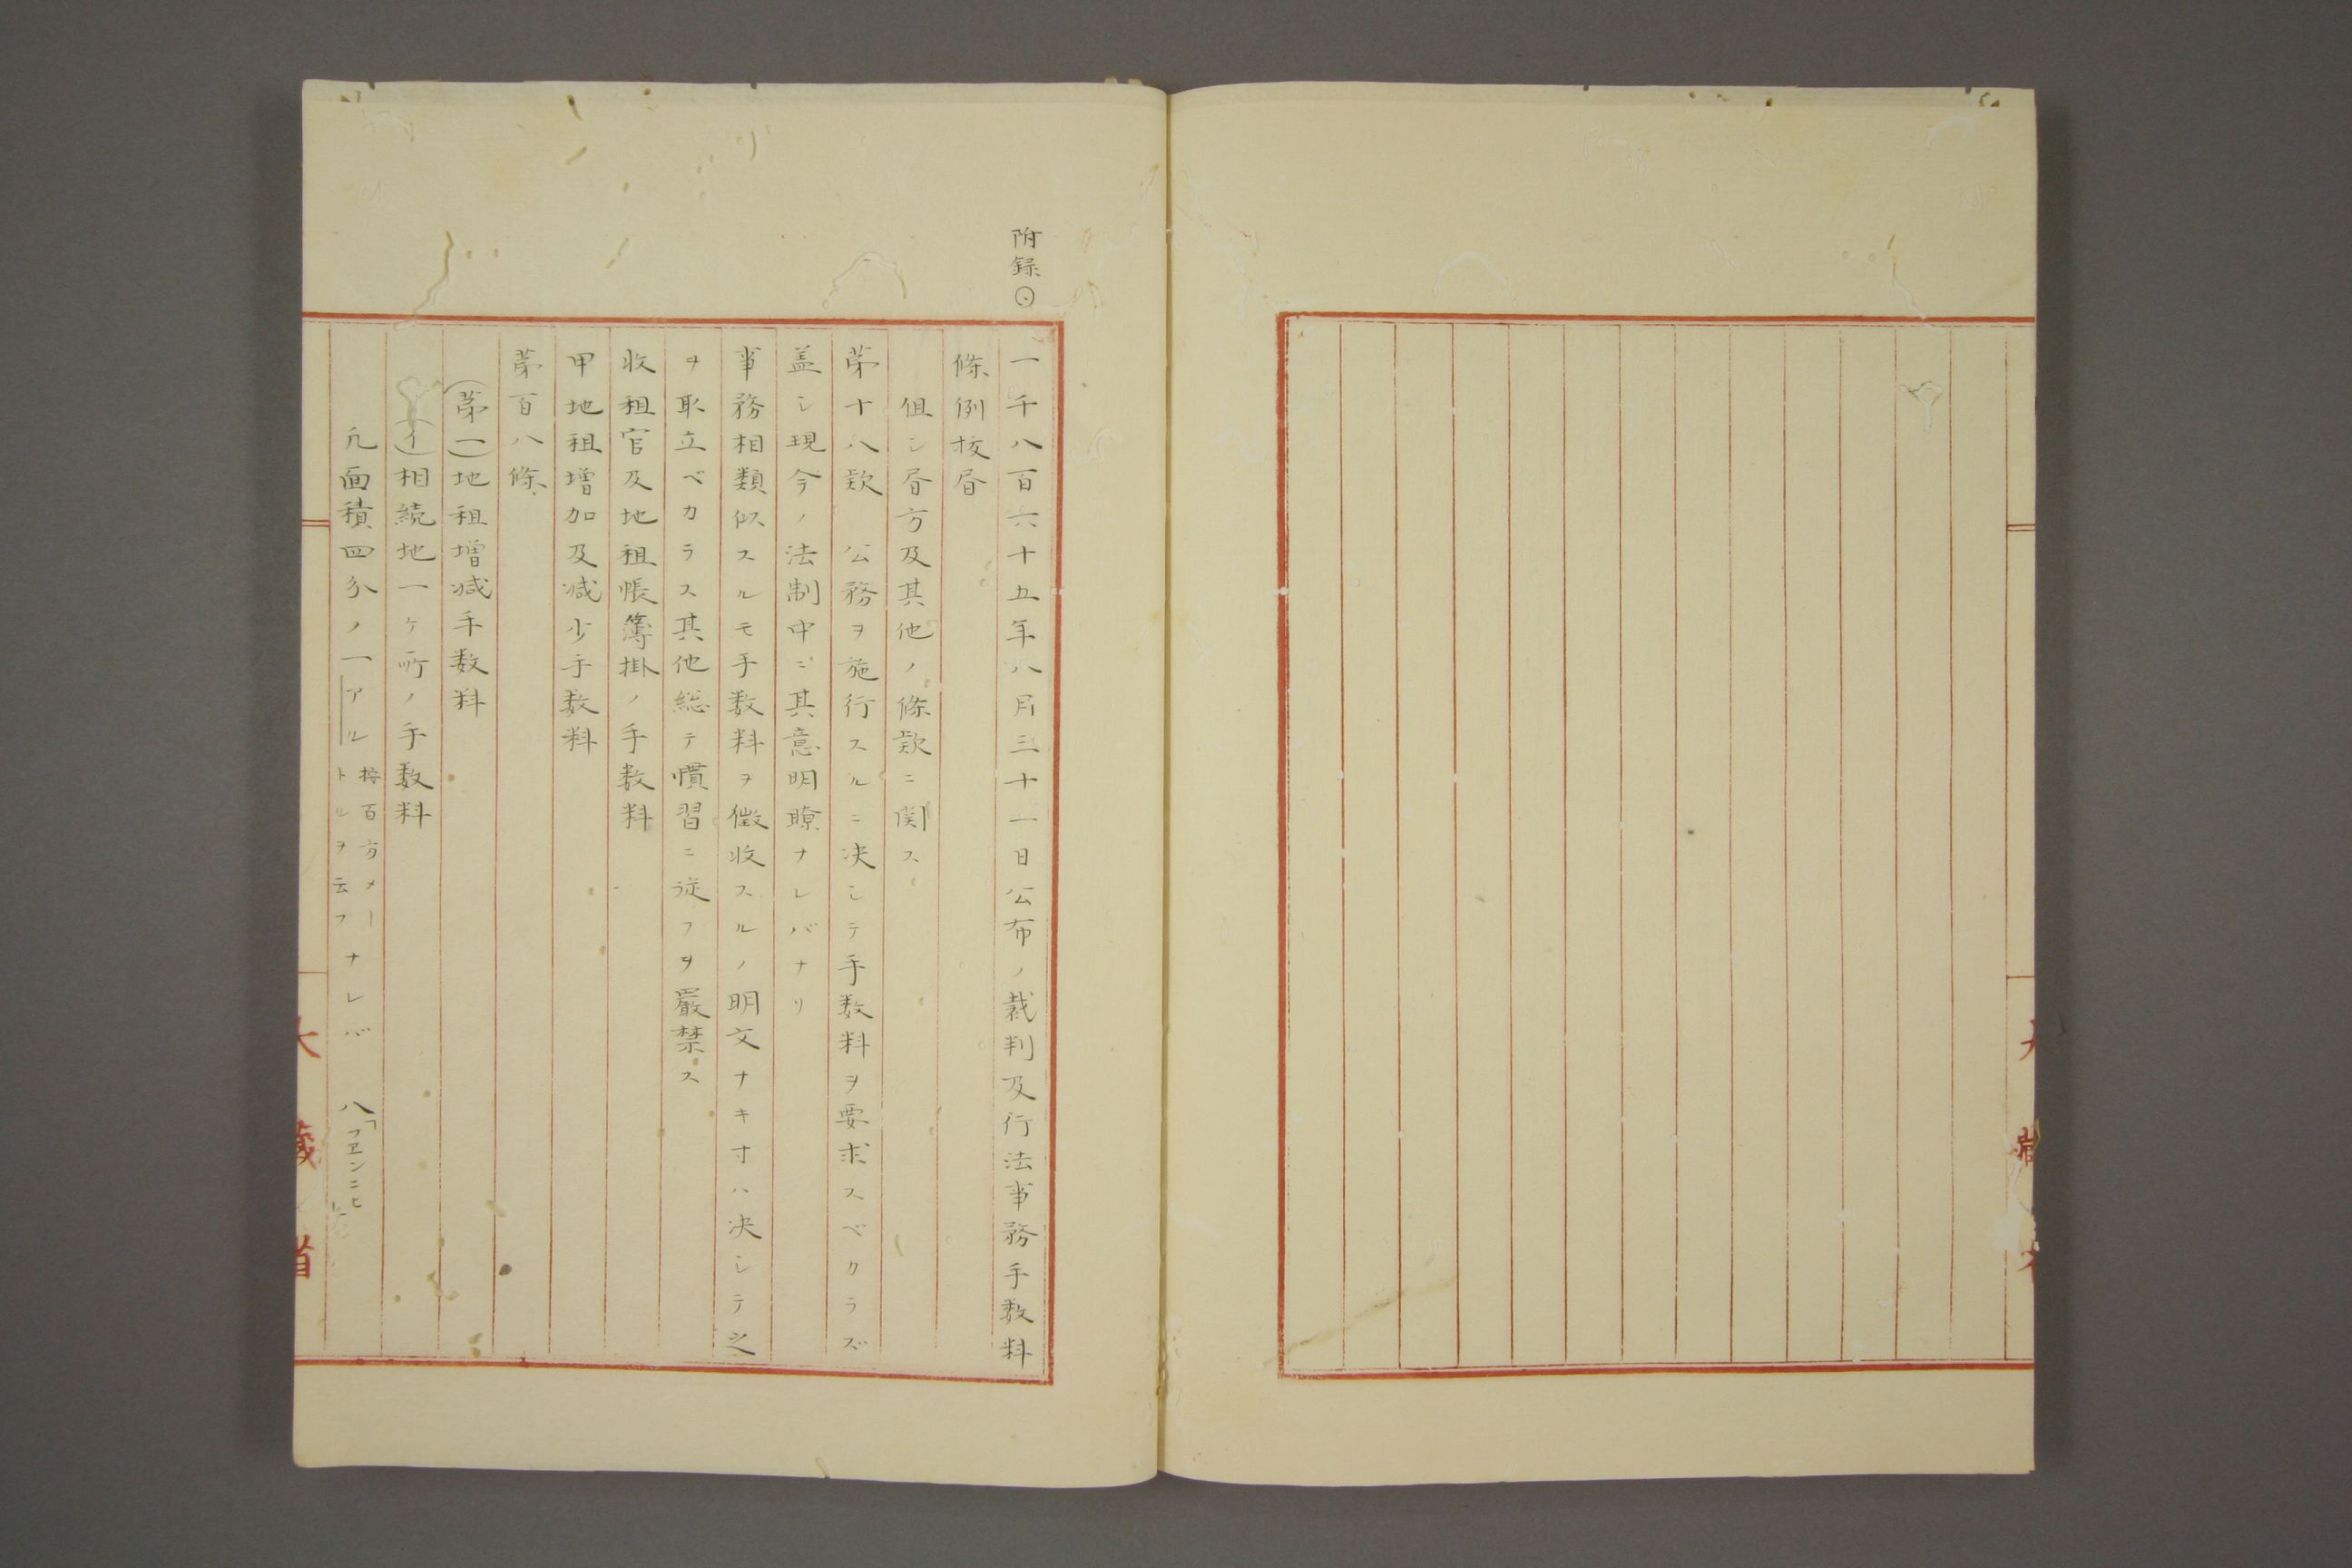 附録
一千八百六十五年八月三十一日公布ノ裁判及行法事務手数料
條例抜昬
但シ昬方及其他ノ條款ニ関ス
第十八款　公務ヲ施行スルニ決シテ手数料ヲ要求スベクラズ
盖シ現今ノ法制中ニ其意明瞭ナレバナリ
事務相類似スルモ手数料ヲ徴收スルノ明文ナキ寸ハ决シテ之
ヲ取立ベカラス其他総テ慣習ニ従フヲ嚴禁ス
收租官及地租帳簿掛ノ手数料
甲地租増加及减少手数料
第百八條
(第一)地租増减手数料
(イ)相続地一ケ所ノ手数料
凢面積四分ノ一アル
按百方メー
トルヲ云フ
ナレバ　八「フヱンニヒ
大藏省
大藏省